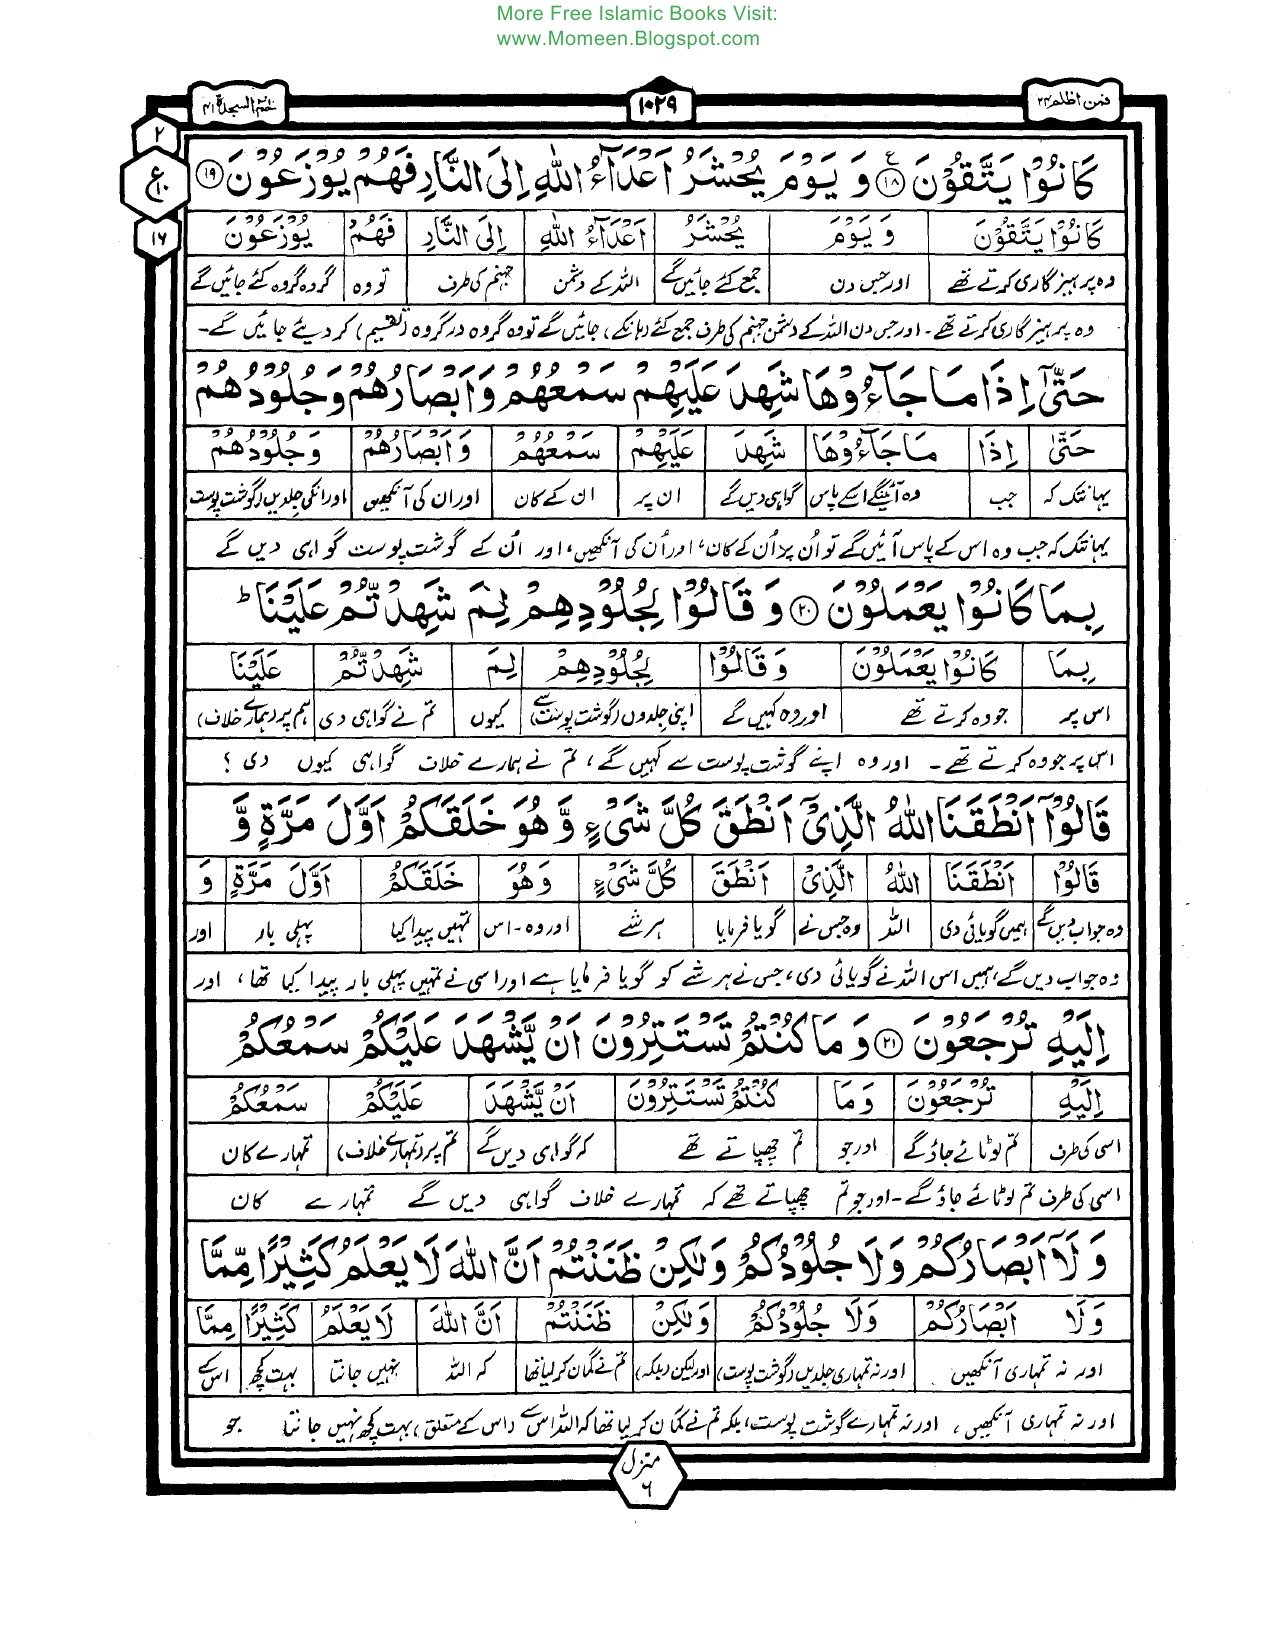 More Free Islamic Books Visit:
www.Momeen.Blogspot.com
فمن اظلم ۲۴
۱۰۲۹
حٰم السجدة ۴۱
۲
ع
۱۰
۱۶
كَانُوْا يَتَّقُوْنَ ۝۱۸ وَ يَوْمَ يُحْشَرُ اَعْدَآءُ اللّٰهِ اِلَى النَّارِ فَهُمْ يُوْزَعُوْنَ ۝۱۹
كَانُوْا يَتَّقُوْنَ وَ يَوْمَ يُحْشَرُ اَعْدَآءُ اللّٰهِ اِلَى النَّارِ فَهُمْ يُوْزَعُوْنَ
وہ پرہیزگاری کرتے تھے اور جس دن جمع کئے جائیں گے اللہ کے دشمن جہنم کی طرف تو وہ گروہ گروہ کئے جائیں گے
وہ پرہیزگاری کرتے تھے۔ اور جس دن اللہ کے دشمن جہنم کی طرف جمع کئے (ہانکے) جائیں گے تو وہ گروہ در گروہ (تقسیم) کر دیئے جائیں گے۔
حَتّٰٓى اِذَا مَا جَآءُوْهَا شَهِدَ عَلَيْهِمْ سَمْعُهُمْ وَاَبْصَارُهُمْ وَجُلُوْدُهُمْ
حَتّٰٓى اِذَا مَا جَآءُوْهَا شَهِدَ عَلَيْهِمْ سَمْعُهُمْ وَاَبْصَارُهُمْ وَجُلُوْدُهُمْ
یہانتک کہ جب وہ آئینگے اسکے پاس گواہی دیں گے ان پر ان کے کان اور ان کی آنکھیں اور انکی جلدیں (گوشت پوست
یہانتک کہ جب وہ اس کے پاس آئیں گے تو اُن پر اُن کے کان، اور اُن کی آنکھیں، اور اُن کے گوشت پوست گواہی دیں گے
بِمَا كَانُوْا يَعْمَلُوْنَ ۝۲۰ وَ قَالُوْا لِجُلُوْدِهِمْ لِمَ شَهِدْتُّمْ عَلَيْنَا ؕ
بِمَا كَانُوْا يَعْمَلُوْنَ وَ قَالُوْا لِجُلُوْدِهِمْ لِمَ شَهِدْتُّمْ عَلَيْنَا
اس پر جو وہ کرتے تھے اور وہ کہیں گے اپنی جلدوں (گوشت پوست) سے کیوں تم نے گواہی دی ہم پر (ہمارے خلاف)
اس پر جو وہ کرتے تھے۔ اور وہ اپنے گوشت پوست سے کہیں گے، تم نے ہمارے خلاف گواہی کیوں دی ؟
قَالُوْٓا اَنْطَقَنَا اللّٰهُ الَّذِيْٓ اَنْطَقَ كُلَّ شَيْءٍ وَّ هُوَ خَلَقَكُمْ اَوَّلَ مَرَّةٍ وَّ
قَالُوْٓا اَنْطَقَنَا اللّٰهُ الَّذِيْٓ اَنْطَقَ كُلَّ شَيْءٍ وَ هُوَ خَلَقَكُمْ اَوَّلَ مَرَّةٍ وَ
وہ جواب دیں گے ہمیں گویائی دی اللہ وہ جس نے گویا فرمایا ہر شے اور وہ - اس تمہیں پیدا کیا پہلی بار اور
وہ جواب دیں گے، ہمیں اس اللہ نے گویائی دی، جس نے ہر شے کو گویا فرمایا ہے اور اسی نے تمہیں پہلی بار پیدا کیا تھا، اور
اِلَيْهِ تُرْجَعُوْنَ ۝۲۱ وَ مَا كُنْتُمْ تَسْتَتِرُوْنَ اَنْ يَّشْهَدَ عَلَيْكُمْ سَمْعُكُمْ
اِلَيْهِ تُرْجَعُوْنَ وَ مَا كُنْتُمْ تَسْتَتِرُوْنَ اَنْ يَّشْهَدَ عَلَيْكُمْ سَمْعُكُمْ
اسی کی طرف تم لوٹائے جاؤ گے اور جو تم چھپاتے تھے کہ گواہی دیں گے تم پر (تمہارے خلاف) تمہارے کان
اسی کی طرف تم لوٹائے جاؤ گے۔ اور جو تم چھپاتے تھے کہ تمہارے خلاف گواہی دیں گے تمہارے کان
وَ لَآ اَبْصَارُكُمْ وَلَا جُلُوْدُكُمْ وَلٰكِنْ ظَنَنْتُمْ اَنَّ اللّٰهَ لَا يَعْلَمُ كَثِيْرًا مِّمَّا
وَ لَا اَبْصَارُكُمْ وَلَا جُلُوْدُكُمْ وَلٰكِنْ ظَنَنْتُمْ اَنَّ اللّٰهَ لَا يَعْلَمُ كَثِيْرًا مِّمَّا
اور نہ تمہاری آنکھیں اور نہ تمہاری جلدیں (گوشت پوست) اور لیکن (بلکہ) تم نے گمان کر لیا تھا کہ اللہ نہیں جانتا بہت کچھ اس سے
اور نہ تمہاری آنکھیں، اور نہ تمہارے گوشت پوست، بلکہ تم نے گمان کر لیا تھا کہ اللہ اس سے (اس کے متعلق) بہت کچھ نہیں جانتا جو
منزل
۶